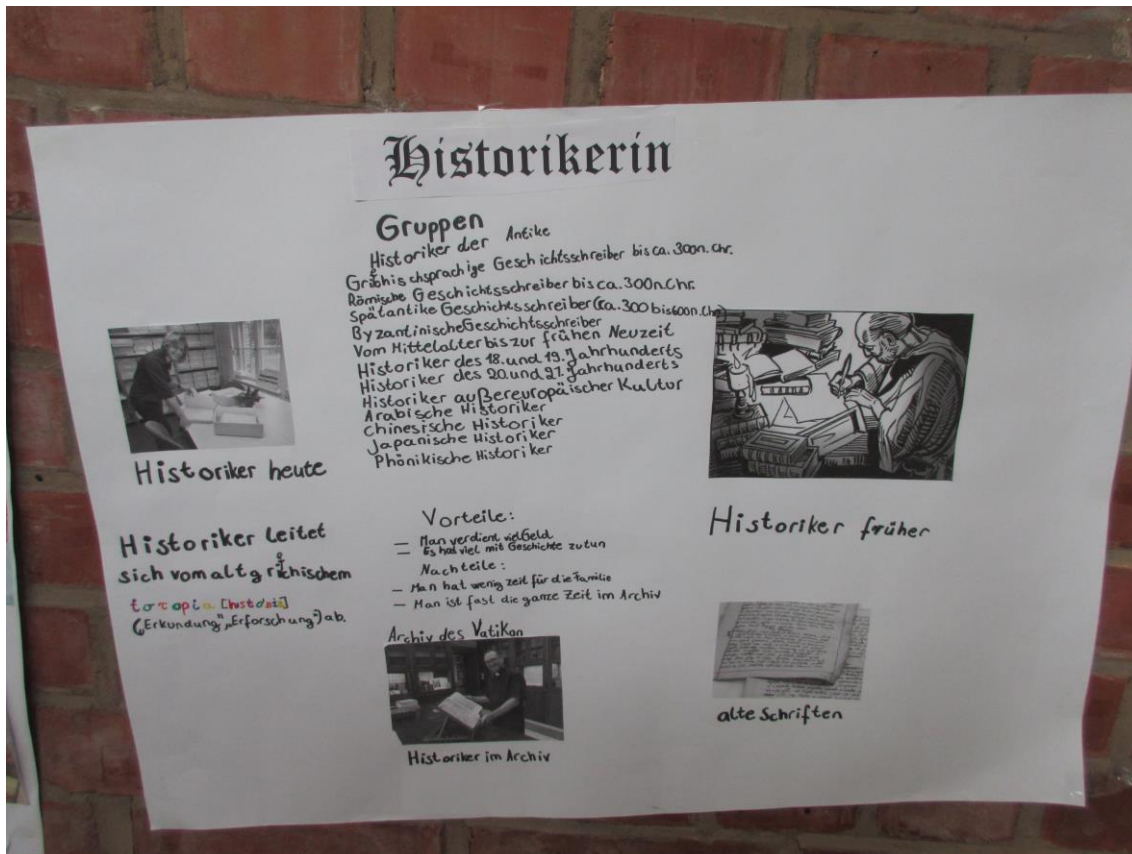 Historikerin
Gruppen
Historiker der Antike
Griechischsprachige Geschichtsschreiber bis ca. 300n. Chr.
Römische Geschichtsschreiber bis ca. 300n.Chr.
Spätantike Geschichtsschreiber (ca. 300 bis 600n. Chr)
Byzantinische Geschichtsschreiber
Vom Mittelalter bis zur frühen Neuzeit
Historiker des 18. und 19. Jahrhunderts
Historiker des 20. und 21. Jahrhunderts
Historiker außereuropäischer Kultur
Arabische Historiker
Chinesische Historiker
Japanische Historiker
Phönikische Historiker
Historiker heute
Historiker leitet
sich vom altgriechischem
("Erkundung", "Erforschung") ab.
Vorteile:
— Man verdient viel Geld
— Es hat viel mit Geschichte zu tun
Nachteile:
— Man hat wenig zeit für die Familie
— Man ist fast die ganze Zeit im Archiv
Archiv des Vatikan
Historiker im Archiv
Historiker früher
alte Schriften